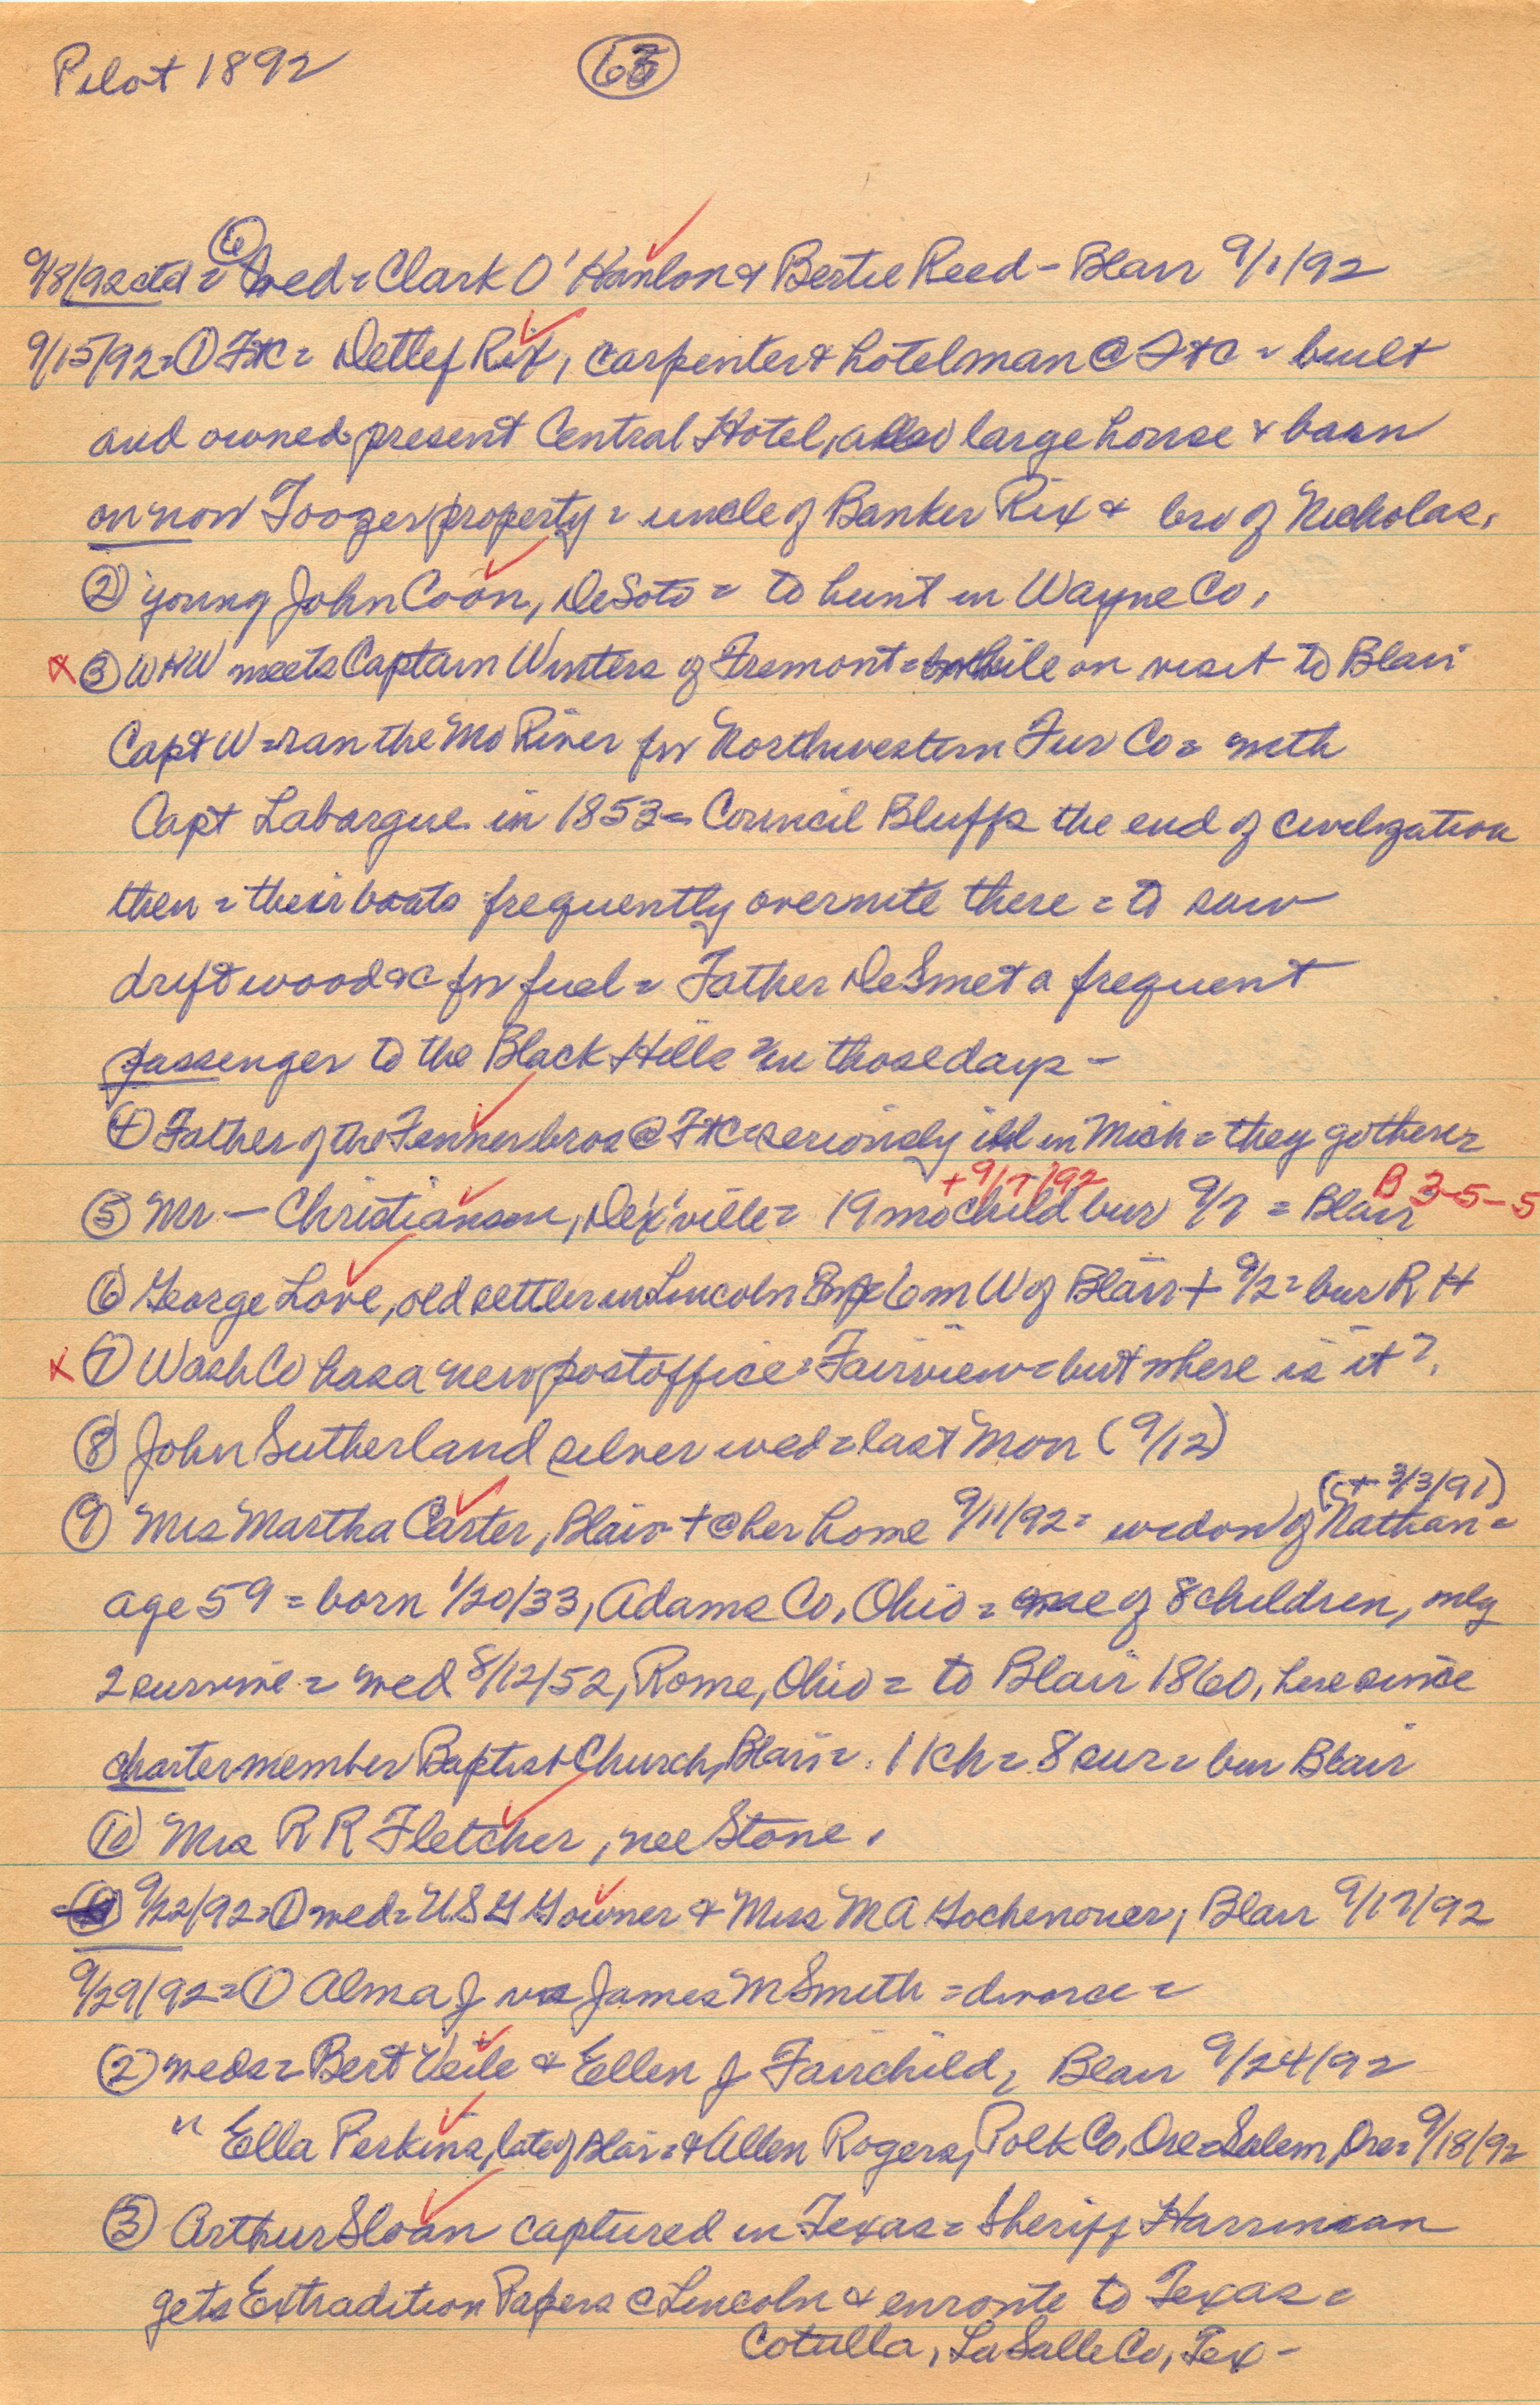 Pilot 1892 63
9/8/92 ctd = 6 wed = Clark O'Hanlon & Bertie Reed - Blair 9/1/92
9/15/92 = 1 FtC = Detlef Rix, carpenter & hotelman @ FtC = built
and owned present Central Hotel, also large house & barn
on now Toozer property = uncle of Banker Rix & bro of Nicholas.
2 young John Coon, DeSoto = to hunt in Wayne Co.
x 3 WHW meets Captain Winters of Fremont = while on visit to Blair
Capt W = ran the Mo River for Northwestern Fur Co = with
Capt Labargue in 1853 = Council Bluffs the end of civilization
then = their boats frequently overnite there = to saw
driftwood &c for fuel = Father DeSmet a frequent
passenger to the Black Hills in those days -
4 Father of the Fenner bros @ FtC = seriously ill in Mich = they go there
+ 9/7/92 B 3-5-5
5 Mr - Christianson, Dex'ville = 19 mo child bur 9/7 = Blair
6 George Love, old settler in Lincoln 6 m W of Blair + 9/2 = bur R H
x 7 Wash Co has a new postoffice = Fairview = but where is it?
8 John Sutherland silver wed = last Mon (9/12)
(+ 3/3/91)
9 Mrs Martha Carter, Blair + @ her home 9/11/92 = widow of Nathan =
age 59 = born 1/20/33, Adams Co, Ohio = one of 8 children, only
2 survive = wed 8/12/52, Rome, Ohio = to Blair 1860, here since
charter member Baptist Church, Blair = 11 ch = 8 sur = bur Blair
10 Mrs R R Fletcher, nee Stone.
9/22/92 = 1 wed = U.S.G Gowner & Miss M A Gochenouer, Blair 9/17/92
9/29/92 = 1 Alma J vs James M Smith = divorce =
2 weds = Bert Veile & Ellen J Fairchild, Blair 9/24/92
" Ella Perkins, late of Blair = & Allen Rogers, Polk Co, Ore = Salem, Ore = 9/18/92
3 Arthur Sloan captured in Texas = Sheriff Harriman
gets Extradition Papers @ Lincoln & enroute to Texas =
Cotulla, LaSalle Co, Tex -